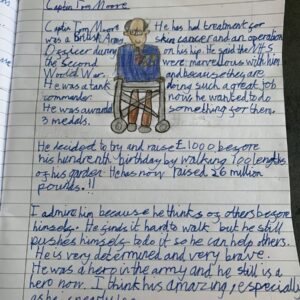 Captain Tom Moore
Captin Tom Moore
was a British Army
Officer during
the Second
World War.
He was a tank
commander.
He was awarded
3 medals.
He has had treatment for
skin cancer and an operation
on his hip. He said the NHS
were marvellous with him
and because they are
doing such a great job
now he wanted to do
something for them.
He decided to try and raise £1000 before
his hundrenth birthday by walking 100 lengths
of his garden. He has now raised 26 million
pounds.!!
I admire him because he thinks of others before
himself. He finds it hard to walk but he still
pushes himself to do it so he can help others.
He is very determined and very brave.
He was a hero in the army and he still is a
hero now. I think his amazing, especially